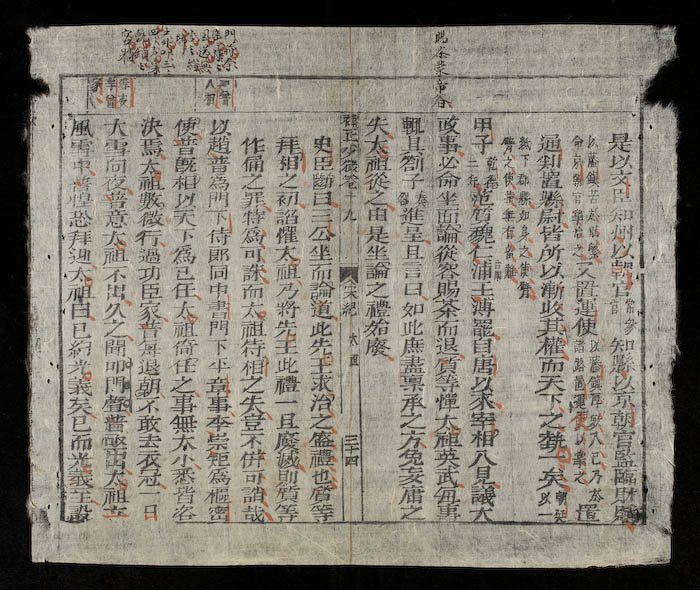 賜茶蒙帝眷
是以文臣知州以朝官常參官知縣以京朝官監臨財賦
又置運使以藩鎮厚斂入己乃於諸路置運使以掌之置
通判置縣尉皆所以漸收其權而天下之勢一矣朝廷以一
紙下郡縣如身之使臂臂之使指無有留難
甲子乾德二年范質魏仁浦音補王溥罷自唐以來宰相入見議大
政事必命坐面論從容賜茶而退質等憚太祖英武每事
輒具劄子奏劄進呈且言曰如此庶盡禀承之方免妄庸之
失太祖從之由是坐論之禮始廢
增正少微卷十九 宋紀 太祖 三十四
史臣斷曰三公坐而論道此先王求治之盛禮也質等
拜相之初諂懼太祖乃將先王此禮一旦廢滅則質等
作俑之罪特為可誅而太祖待相之失豈不併可誚哉
以趙普為門下侍郎同中書門下平章事李崇矩為樞密
使普既相以天下為己任太祖倚任之事無大小悉皆咨
決焉太祖數微行過功臣家普每退朝不敢去衣冠一日
大雪向夜普意太祖不出久之聞叩門聲普亟出太祖立
風雪中普惶恐拜迎太祖曰已約光義矣已而光義至設